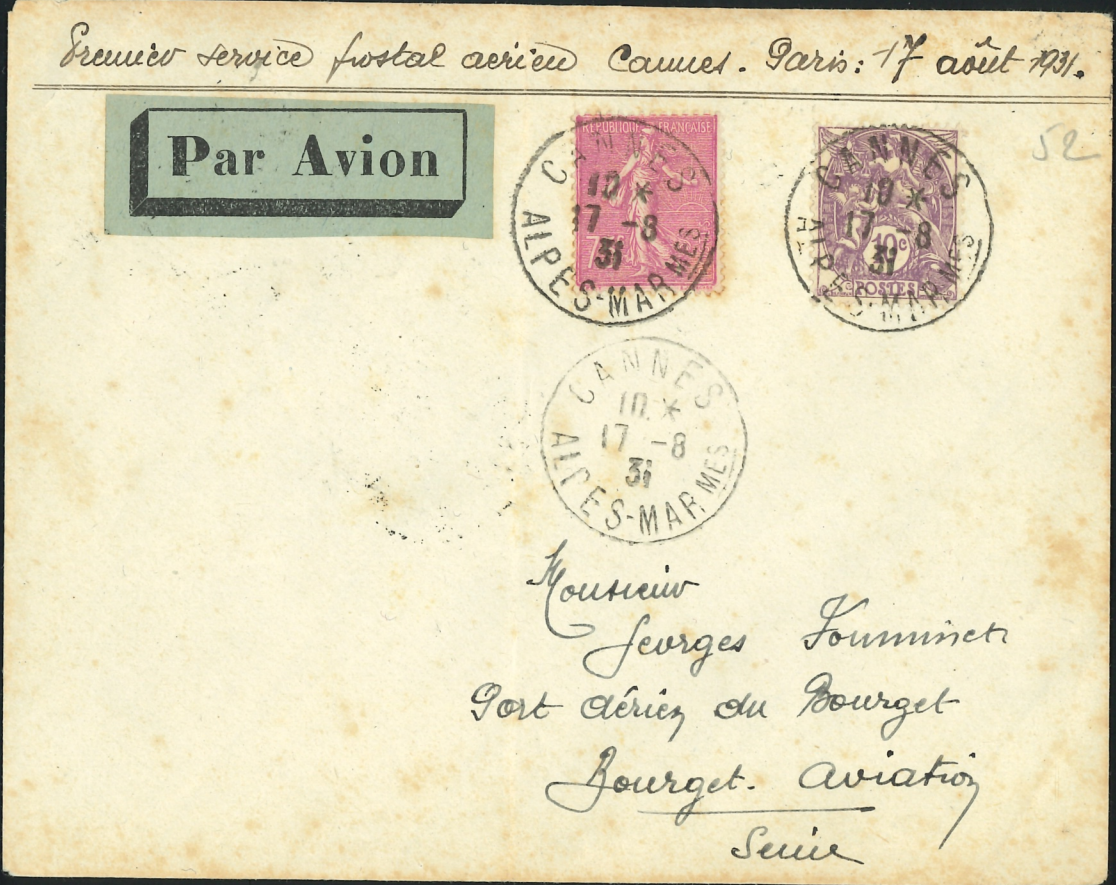 Premier service postal aérien Cannes. Paris: 17 août 1931.
Par Avion
RÉPUBLIQUE FRANÇAISE
CANNES
10 *
17 -8
31
ALPES-MARMES
CANNES
10 *
17 -8
31
ALPES-MARMES
10c
POSTES
52
CANNES
10 *
17 -8
31
ALPES-MARMES
Monsieur
Georges
Port Aérien du Bourget
Bourget. Aviation
Seine